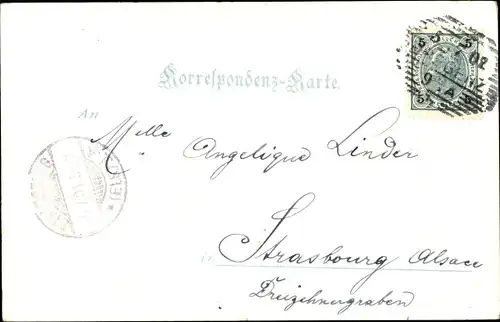 Korrespondenz-Karte.
An
Melle Angelique Linder
in Strasbourg Alsace
Dreizehnergraben